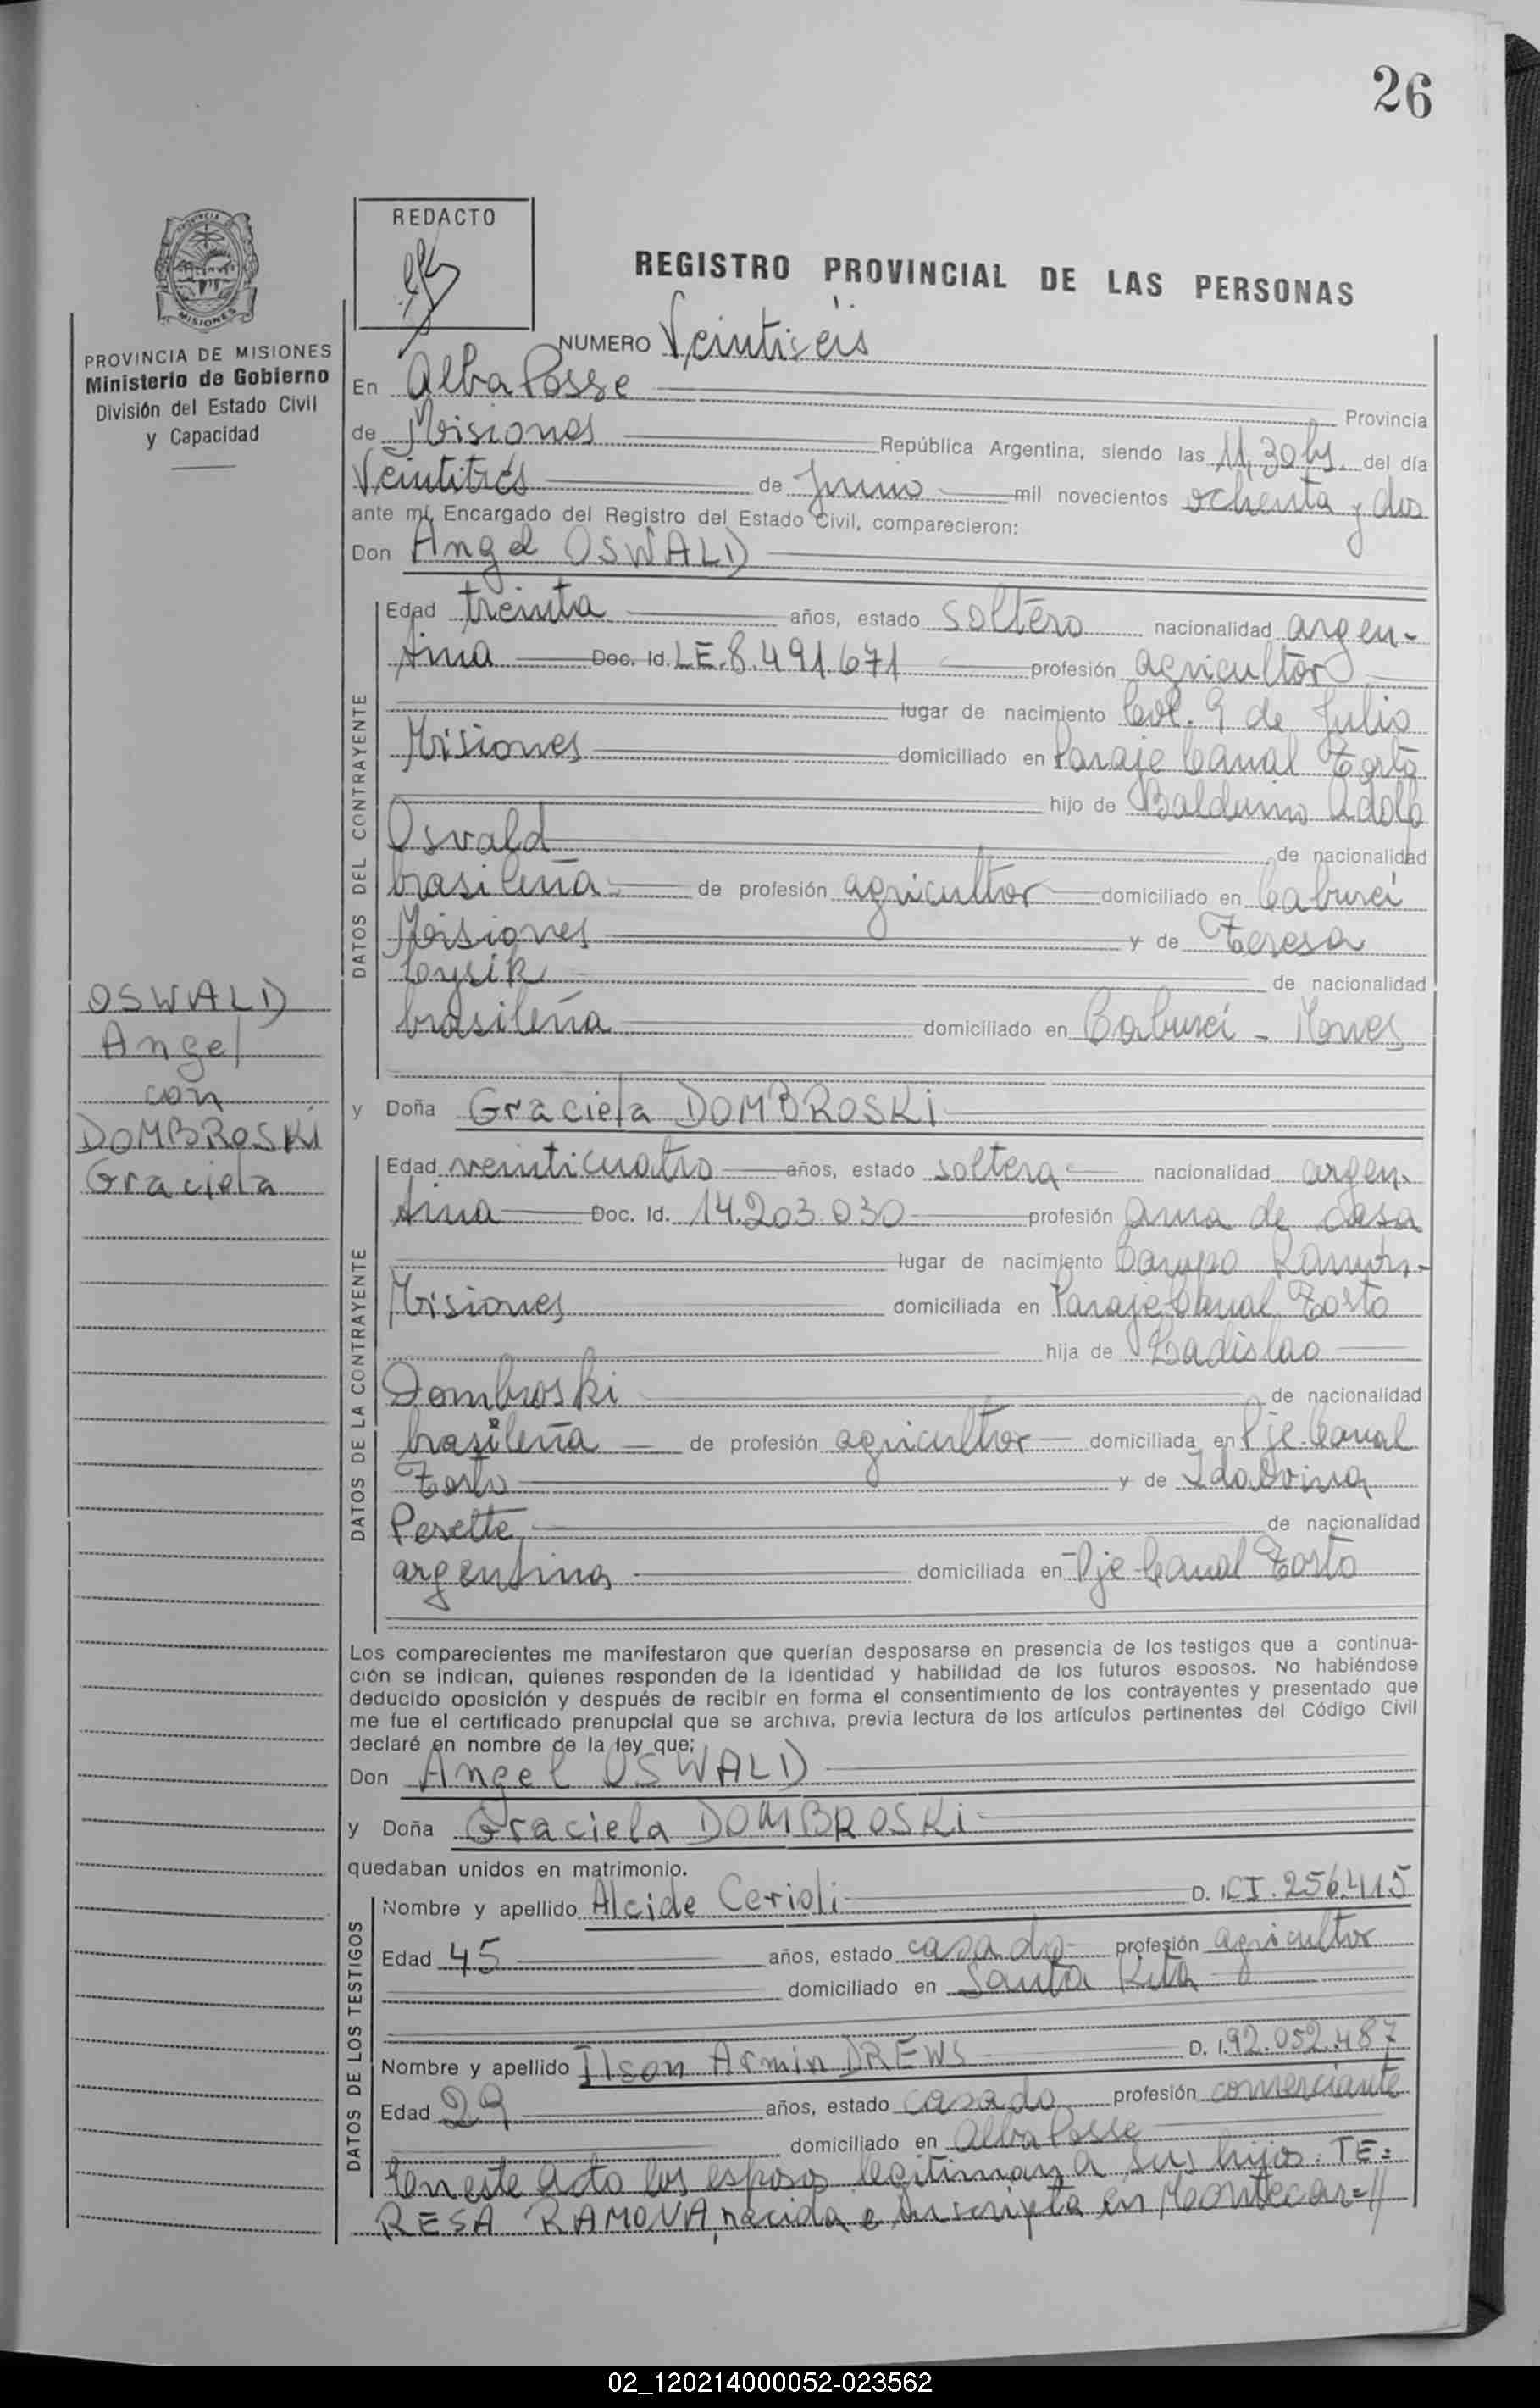 26
REDACTO
REGISTRO PROVINCIAL DE LAS PERSONAS
PROVINCIA DE MISIONES
Ministerio de Gobierno
División del Estado Civil
y Capacidad
NUMERO Veintiséis
En Alba Posse Provincia
de Misiones República Argentina, siendo las 11,30 hs. del día
Veintitrés de Junio mil novecientos ochenta y dos
ante mí, Encargado del Registro del Estado Civil, comparecieron:
Don Angel OSWALD
DATOS DEL CONTRAYENTE
Edad treinta años, estado soltero nacionalidad argen-
tina Doc. Id. LE.8.491.671 profesión agricultor
lugar de nacimiento Col. 9 de Julio
Misiones domiciliado en Paraje Canal Torto
hijo de Balduino Adolfo
Osvald de nacionalidad
brasileña de profesión agricultor domiciliado en Caburei
Misiones y de Teresa
de nacionalidad
brasileña domiciliado en Caburei - Mones
OSWALD
Angel
con
DOMBROSKI
Graciela
y Doña Graciela DOMBROSKI
DATOS DE LA CONTRAYENTE
Edad veinticuatro años, estado soltera nacionalidad argen-
tina Doc. Id. 14.203.030 profesión ama de casa
lugar de nacimiento Campo Ramón-
Misiones domiciliada en Paraje Canal Torto
hija de Ladislao
Dombroski de nacionalidad
brasileña de profesión agricultor domiciliada en Pje. Canal
Torto y de Idalvina
Perette de nacionalidad
argentina domiciliada en Pje Canal Torto
Los comparecientes me manifestaron que querían desposarse en presencia de los testigos que a continua-
ción se indican, quienes responden de la identidad y habilidad de los futuros esposos. No habiéndose
deducido oposición y después de recibir en forma el consentimiento de los contrayentes y presentado que
me fue el certificado prenupcial que se archiva, previa lectura de los artículos pertinentes del Código Civil
declaré en nombre de la ley que:
Don Angel OSWALD
y Doña Graciela DOMBROSKI
quedaban unidos en matrimonio.
DATOS DE LOS TESTIGOS
Nombre y apellido Alcide Cerioli D. I. CI. 256.415
Edad 45 años, estado casado profesión agricultor
domiciliado en Santa Rita
Nombre y apellido Ilson Armin DREWS D. I. 92.052.487
Edad 29 años, estado casado profesión comerciante
domiciliado en Alba Posse
En este acto los esposos legitiman a sus hijos: TE=
RESA RAMONA, nacida e inscripta en Montecar=//
02_120214000052-023562